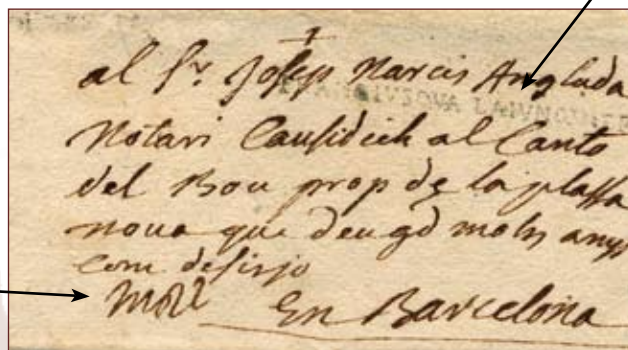 al Sr. Josep Narcis Anglada
Notari Causidich al Canto
del Bou prop de la plassa
noua que deu gd molts anys
com desitjo
En Barcelona